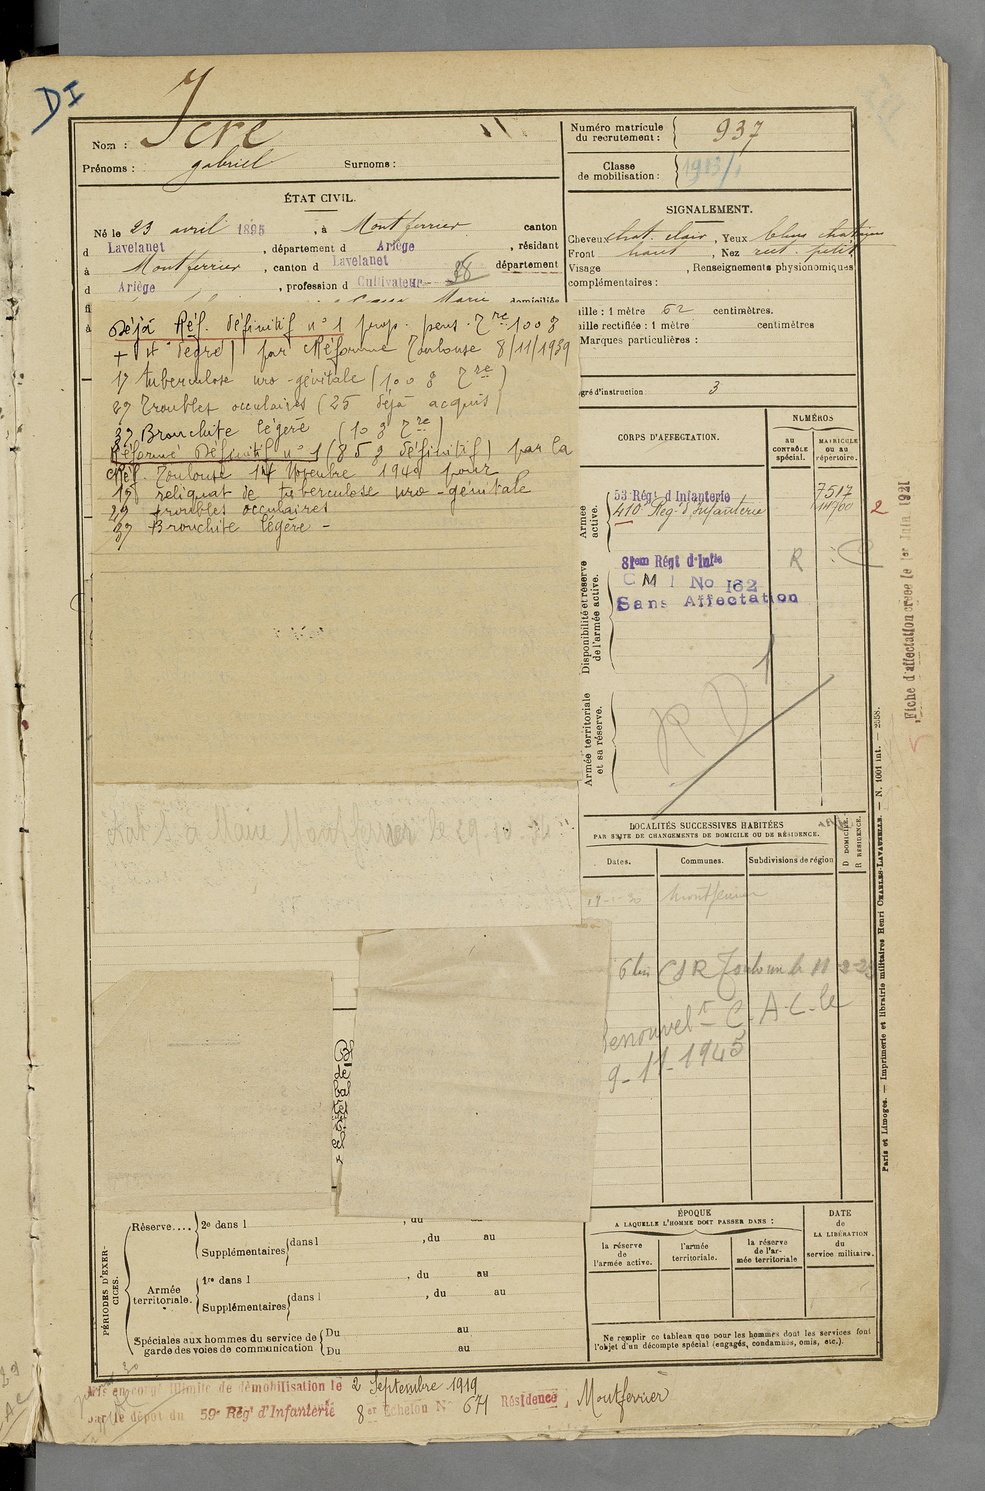 DI
Nom : Icre
Prénoms : gabriel Surnoms :
Numéro matricule du recrutement : 937
Classe de mobilisation : 1913/1
ÉTAT CIVIL.
Né le 23 avril 1895, à Montferrier canton
d Lavelanet, département d Ariège, résidant
à Montferrier, canton d Lavelanet département
d Ariège, profession d Cultivateur 38
Marie domiciliés
SIGNALEMENT.
Cheveux chat. clair, Yeux bleus chatains
Front haut, Nez rect. petit
Visage , Renseignements physionomiques
complémentaires :
aille : 1 mètre 62 centimètres.
aille rectifiée : 1 mètre centimètres
Marques particulières :
gré d'instruction : 3
Déjà Réf. définitif n° 1 prop. pens.
par Réforme Toulouse 8/11/1939
1° tuberculose uro-génitale (100
2° Troubles occulaires (25 déjà acquis)
3° Bronchite légère (10
Réformé Définitif n° 1 (85 % définitif) par la
Réf. Toulouse 14 Novembre 1940 pour
1° reliquat de tuberculose uro-génitale
2° troubles occulaires
3° Bronchite légère -
CORPS D'AFFECTATION.
NUMÉROS
au CONTRÔLE spécial.
MATRICULE ou au répertoire.
Armée active.
53 Régt d'Infanterie 7517
410e Rég. d'Infanterie 14700
2
Disponibilité et réserve de l'armée active.
81em Régt d'Infie R
C M I No 162
Sans Affectation
Armée territoriale et sa réserve.
R D 1
Fiche d'affectation créée le 1er Juin 1921
LOCALITÉS SUCCESSIVES HABITÉES
PAR SUITE DE CHANGEMENTS DE DOMICILE OU DE RÉSIDENCE.
D DOMICILE.
R RÉSIDENCE.
Dates. Communes. Subdivisions de région
Montferrier
CSR Toulouse le 11
Renouvelt C.A.C. le
9-11-1945
Paris et Limoges. — Imprimerie et librairie militaires Henri CHARLES-LAVAUZELLE. — N. 1001 int. — 2558.
PÉRIODES D'EXERCICES.
Réserve.... 2e dans l , du au
Supplémentaires dans l , du au
Armée territoriale. 1re dans l , du au
Supplémentaires dans l , du au
Spéciales aux hommes du service de garde des voies de communication Du au
Du au
ÉPOQUE
A LAQUELLE L'HOMME DOIT PASSER DANS :
la réserve de l'armée active.
l'armée territoriale.
la réserve de l'armée territoriale
DATE de LA LIBÉRATION du service militaire.
Ne remplir ce tableau que pour les hommes dont les services font
l'objet d'un décompte spécial (engagés, condamnés, omis, etc.).
Mis en congé illimité de démobilisation le 2 Septembre 1919
par le dépôt du 59e Régt d'Infanterie 8er Echelon N° 671 Résidence, Montferrier